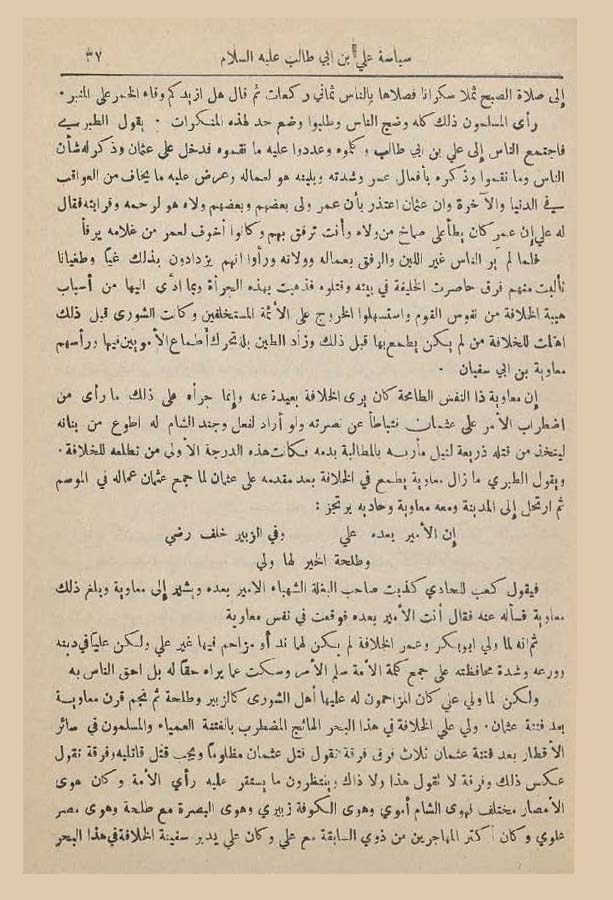 سياسة علي بن ابي طالب عليه السلام ٣٧
إلى صلاة الصبح ثملا سكرانا فصلاها بالناس ثماني ركعات ثم قال هل ازيدكم وقاء الخمر على المنبر.
رأى المسلمون ذلك كله وضج الناس وطلبوا وضع حد لهذه المنكرات . يقول الطبرسي
فاجتمع الناس إلى علي بن ابي طالب وكلموه وعددوا عليه ما نقموه فدخل على عثمان وذكر له شأن
الناس وما نقموا وذكره بأفعال عمر وشدته وبلينه هو لعماله وعرض عليه ما يخاف من العواقب
في الدنيا والآخرة وان عثمان اعتذر بأن عمر ولى بعضهم وبعضهم ولاه هو لرحمه وقرابته فقال
له علي إن عمر كان يطأ على صماخ من ولاه وأنت ترفق بهم وكانوا أخوف لعمر من غلامه يرفأ
فلما لم ير الناس غير اللين والرفق بعماله وولاته ورأوا انهم يزدادون بذلك غيًا وطغيانا
تألبت منهم فرق حاصرت الخليفة في بيته وقتلوه فذهبت بهذه الجرأة وبما ادى اليها من أسباب
هيبة الخلافة من نفوس القوم واستسهلوا الخروج على الأئمة المستخلفين وكانت الشورى قبل ذلك
اهلت للخلافة من لم يكن يطمع بها قبل ذلك وزاد الطين بلة تحرك أطماع الأمويين فيها ورأسهم
معاوية بن ابي سفيان .
إن معاوية ذا النفس الطامحة كان يرى الخلافة بعيدة عنه وإنما جرأه على ذلك ما رأى من
اضطراب الأمر على عثمان فتباطأ عن نصرته ولو أراد لفعل وجند الشام له اطوع من بنانه
ليتخذ من قتله ذريعة لنيل مأربه بالمطالبة بدمه فكانت هذه الدرجة الأولى من تطلعه للخلافة.
ويقول الطبري ما زال معاوية يطمع في الخلافة بعد مقدمه على عثمان لما جمع عثمان عماله في الموسم
ثم ارتحل إلى المدينة ومعه معاوية وحاديه يرتجز :
إن الأمير بعده علي وفي الزبير خلف رضي
وطلحة الخير لها ولي
فيقول كعب للحادي كذبت صاحب البغلة الشهباء الامير بعده ويشير إلى معاوية وبلغ ذلك
معاوية فسأله عنه فقال أنت الأمير بعده فوقعت في نفس معاوية
ثم انه لما ولي ابو بكر وعمر الخلافة لم يكن لهما ند أو مزاحم فيها غير علي ولكن عليًا في دينه
وورعه وشدة محافظته على جمع كلمة الأمة سلم الأمر وسكت عما يراه حقا له بل احق الناس به
ولكن لما ولي علي كان المزاحمون له عليها أهل الشورى كالزبير وطلحة ثم نجم قرن معاوية
بعد فتنة عثمان . ولي علي الخلافة في هذا البحر المائج المضطرب بالفتنة العمياء والمسلمون في سائر
الأقطار بعد فتنة عثمان ثلاث فرق فرقة تقول قتل عثمان مظلومًا ويجب قتل قاتليه وفرقة تقول
عكس ذلك وفرقة لا تقول هذا ولا ذاك وينتظرون ما يستقر عليه رأي الأمة وكان هوى
الأمصار مختلف فهوى الشام أموي وهوى الكوفة زبيري وهوى البصرة مع طلحة وهوى مصر
علوي وكان أكثر المهاجرين من ذوي السابقة مع علي وكان علي يدير سفينة الخلافة في هذا البحر